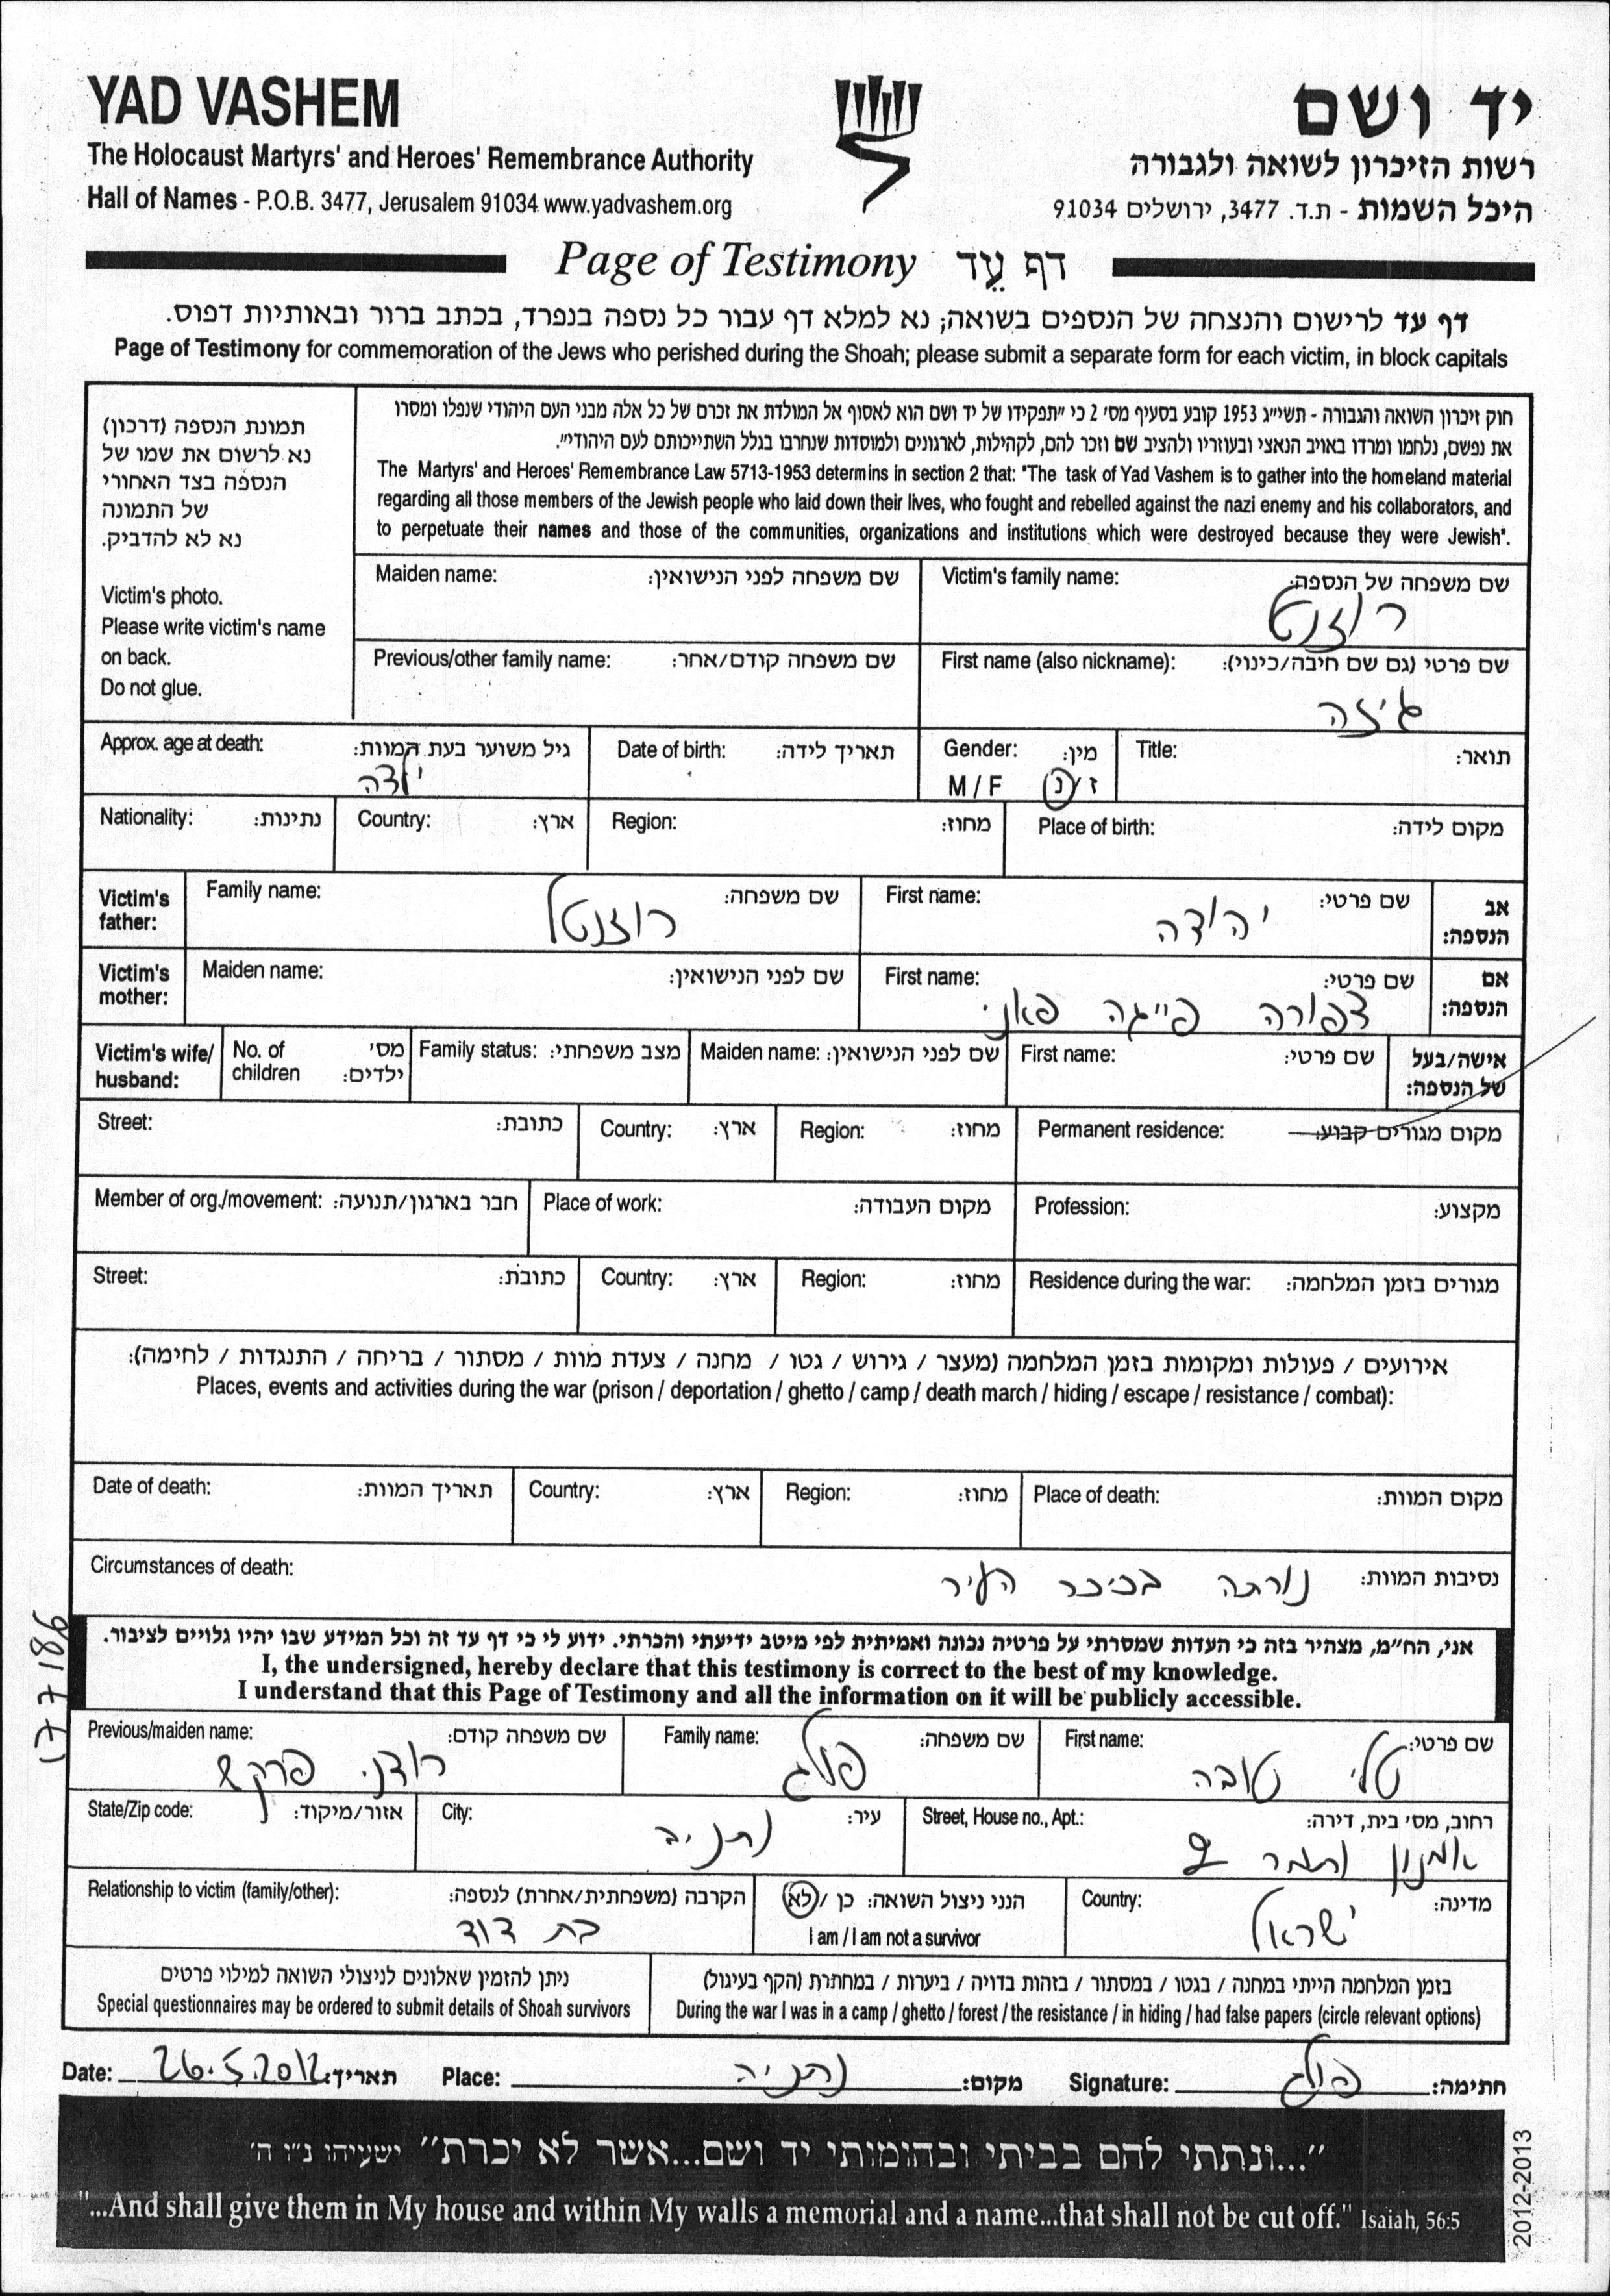 YAD VASHEM
יד ושם
The Holocaust Martyrs' and Heroes' Remembrance Authority
רשות הזיכרון לשואה ולגבורה
Hall of Names - P.O.B. 3477, Jerusalem 91034 www.yadvashem.org
היכל השמות - ת.ד. 3477, ירושלים 91034
Page of Testimony דף עֵד
דף עד לרישום והנצחה של הנספים בשואה; נא למלא דף עבור כל נספה בנפרד, בכתב ברור ובאותיות דפוס.
Page of Testimony for commemoration of the Jews who perished during the Shoah; please submit a separate form for each victim, in block capitals
תמונת הנספה (דרכון)
נא לרשום את שמו של
הנספה בצד האחורי
של התמונה
נא לא להדביק.
Victim's photo.
Please write victim's name
on back.
Do not glue.
חוק זיכרון השואה והגבורה - תשי״ג 1953 קובע בסעיף מס׳ 2 כי ״תפקידו של יד ושם הוא לאסוף אל המולדת את זכרם של כל אלה מבני העם היהודי שנפלו ומסרו
את נפשם, נלחמו ומרדו באויב הנאצי ובעוזריו ולהציב שם וזכר להם, לקהילות, לארגונים ולמוסדות שנחרבו בגלל השתייכותם לעם היהודי״.
The Martyrs' and Heroes' Remembrance Law 5713-1953 determins in section 2 that: "The task of Yad Vashem is to gather into the homeland material
regarding all those members of the Jewish people who laid down their lives, who fought and rebelled against the nazi enemy and his collaborators, and
to perpetuate their names and those of the communities, organizations and institutions which were destroyed because they were Jewish".
Victim's family name: שם משפחה של הנספה:
Maiden name: שם משפחה לפני הנישואין:
First name (also nickname): שם פרטי (גם שם חיבה/כינוי):
גיזה
Previous/other family name: שם משפחה קודם/אחר:
Title: תואר:
Gender: מין:
M / F ז / נ
Date of birth: תאריך לידה:
Approx. age at death: גיל משוער בעת המוות:
ילדה
Place of birth: מקום לידה:
Region: מחוז:
Country: ארץ:
Nationality: נתינות:
Victim's father: אב הנספה:
First name: שם פרטי:
יהודה
Family name: שם משפחה:
רוזנטל
Victim's mother: אם הנספה:
First name: שם פרטי:
צפורה פייגה פאני
Maiden name: שם לפני הנישואין:
Victim's wife/ husband: אישה/בעל של הנספה:
First name: שם פרטי:
Maiden name: שם לפני הנישואין:
Family status: מצב משפחתי:
No. of children מס׳ ילדים:
Permanent residence: מקום מגורים קבוע:
Region: מחוז:
Country: ארץ:
Street: כתובת:
Profession: מקצוע:
Place of work: מקום העבודה:
Member of org./movement: חבר בארגון/תנועה:
Residence during the war: מגורים בזמן המלחמה:
Region: מחוז:
Country: ארץ:
Street: כתובת:
אירועים / פעולות ומקומות בזמן המלחמה (מעצר / גירוש / גטו / מחנה / צעדת מוות / מסתור / בריחה / התנגדות / לחימה):
Places, events and activities during the war (prison / deportation / ghetto / camp / death march / hiding / escape / resistance / combat):
Place of death: מקום המוות:
Region: מחוז:
Country: ארץ:
Date of death: תאריך המוות:
Circumstances of death: נסיבות המוות:
נורתה בכיכר העיר
אני, הח״מ, מצהיר בזה כי העדות שמסרתי על פרטיה נכונה ואמיתית לפי מיטב ידיעתי והכרתי. ידוע לי כי דף עד זה וכל המידע שבו יהיו גלויים לציבור.
I, the undersigned, hereby declare that this testimony is correct to the best of my knowledge.
I understand that this Page of Testimony and all the information on it will be publicly accessible.
First name: שם פרטי:
טלי טובה
Family name: שם משפחה:
פולג
Previous/maiden name: שם משפחה קודם:
Street, House no., Apt.: רחוב, מס׳ בית, דירה:
אמנון ותמר
City: עיר:
State/Zip code: אזור/מיקוד:
Country: מדינה:
ישראל
הנני ניצול השואה: כן / לא
I am / I am not a survivor
Relationship to victim (family/other): הקרבה (משפחתית/אחרת) לנספה:
בת דוד
בזמן המלחמה הייתי במחנה / בגטו / במסתור / בזהות בדויה / ביערות / במחתרת (הקף בעיגול)
During the war I was in a camp / ghetto / forest / the resistance / in hiding / had false papers (circle relevant options)
ניתן להזמין שאלונים לניצולי השואה למילוי פרטים
Special questionnaires may be ordered to submit details of Shoah survivors
Date: 26.5.2012 תאריך: Place: נתניה מקום: Signature: פולג חתימה:
״...ונתתי להם בביתי ובחומותי יד ושם...אשר לא יכרת״ ישעיהו נ״ו ה׳
"...And shall give them in My house and within My walls a memorial and a name...that shall not be cut off." Isaiah, 56:5
2012-2013